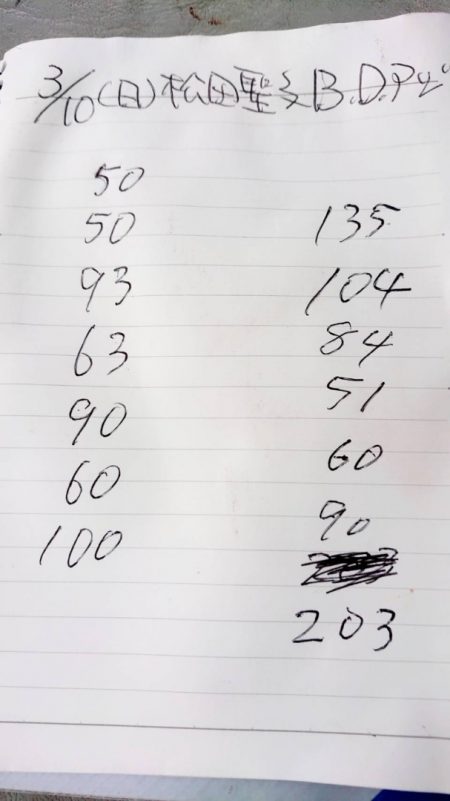 3/10(日)松田聖子B.D.Pイ
50
50
93
63
90
60
100
135
104
84
51
60
90
203